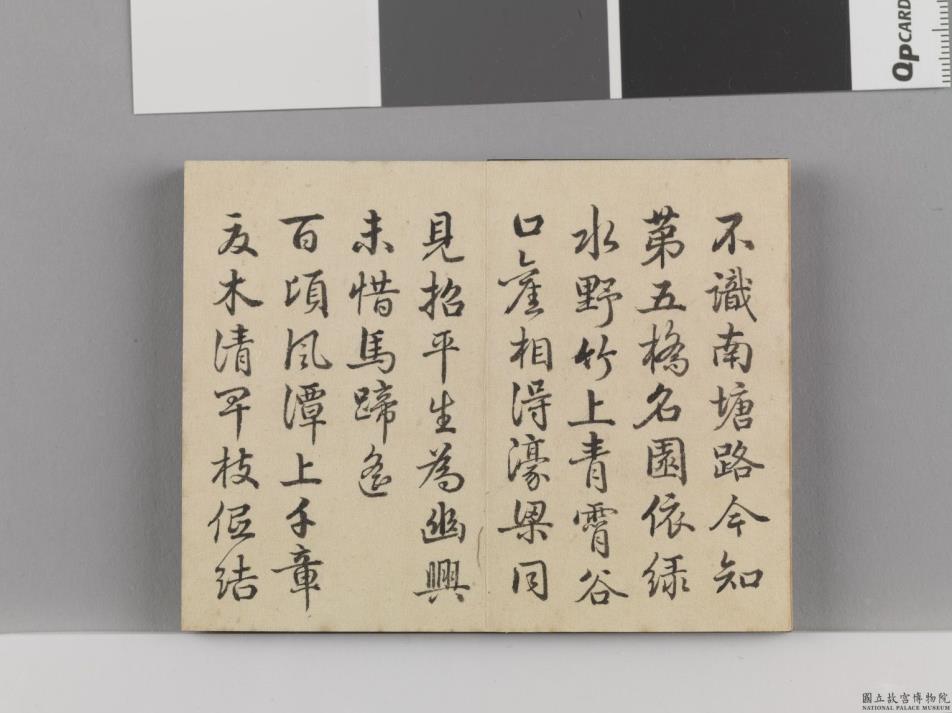 QPCARD
不識南塘路今知
第五橋名園依綠
水野竹上青霄谷
口舊相得濠梁同
見招平生為幽興
未惜馬蹄遙
百頃風潭上千章
夏木清卑枝低結
國立故宮博物院
NATIONAL PALACE MUSEUM